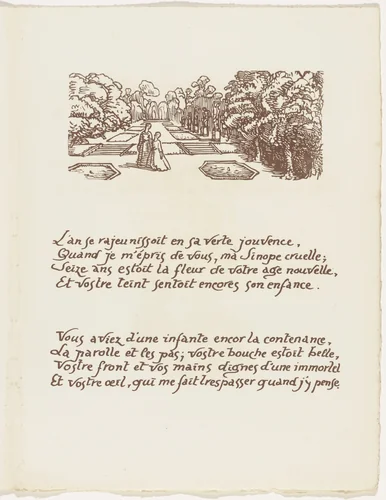 L'an se rajeunissoit en sa verte jouvence,
Quand je m'épris de vous, ma Sinope cruelle;
Seize ans estoit la fleur de votre age nouvelle,
Et vostre teint sentoit encores son enfance.
Vous aviez d'une infante encor la contenance,
La parolle et les pas; vostre bouche estoit belle,
Vostre front et vos mains dignes d'une immortel
Et vostre œil, qui me fait trespasser quand j'y pense.